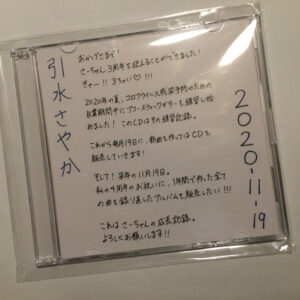 引水さやか
おかげさまで！
さーちゃん3周年を迎えることができました！
きゃー！！うれしい♡!!!
2020年の夏、コロナウイルス感染予防のための
自粛期間中にアコースティックギターを練習し始
めました！このCDはその練習記録。
これから毎月19日に、新曲を作ってはCDを
販売していきます！
そして！来年の11月19日。
私の4周年のお祝いに、1年間で作った全て
の曲を録り直したアルバムを販売したい!!!
これはさーちゃんの成長記録。
よろしくお願いします!!
2020-11-19